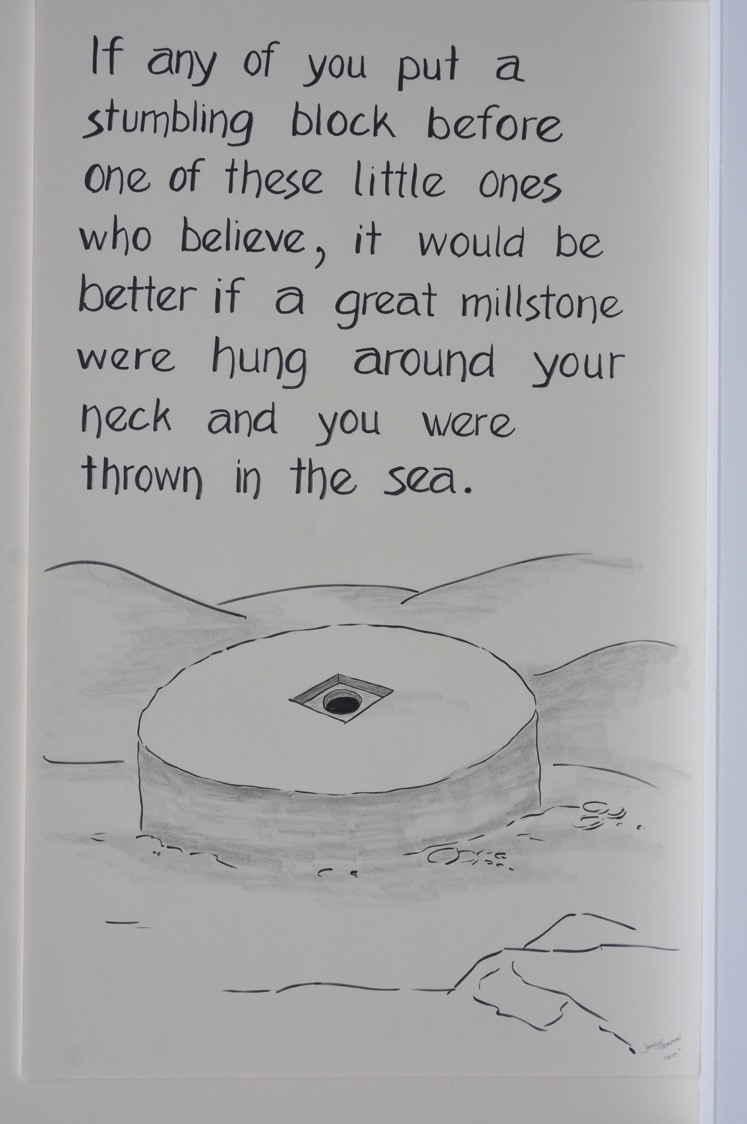 If any of you put a
stumbling block before
one of these little ones
who believe, it would be
better if a great millstone
were hung around your
neck and you were
thrown in the sea.